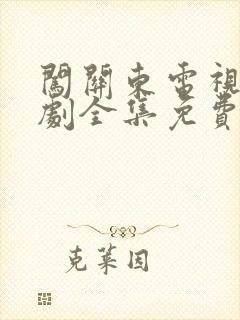 闖關東電視
劇全集免費
克萊因